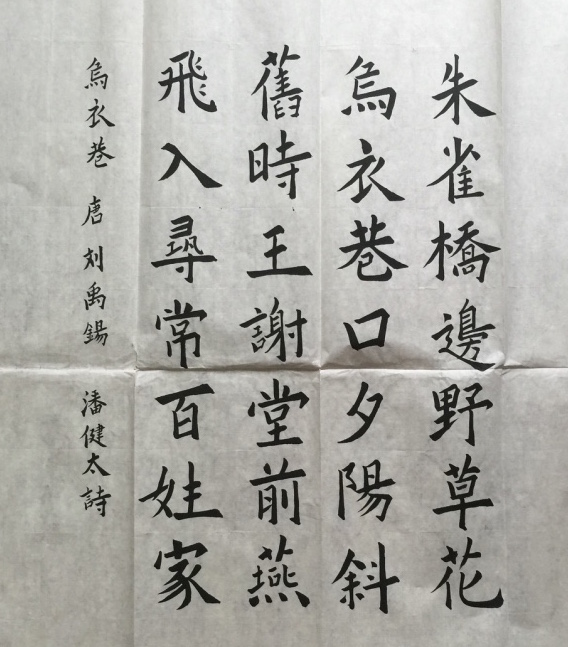 朱雀橋邊野草花
烏衣巷口夕陽斜
舊時王謝堂前燕
飛入尋常百姓家
烏衣巷 唐 刘禹錫 潘健太詩